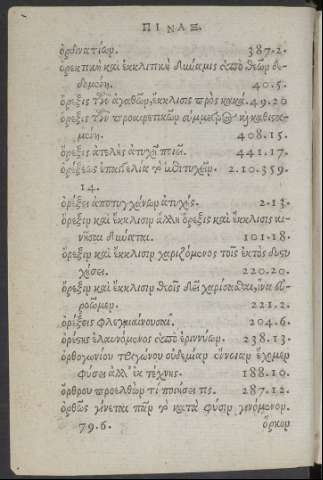 ΠΙΝΑΞ.
ὀρδινατίων. 387.2.
ὀρεκτικὴ καὶ ἐκκλιτικὴ δύναμις ἀπὸ θεῶν δε-
δομένη. 40.5.
ὄρεξις τῶν ἀγαθῶν, ἔκκλισις πρὸς κακά. 49.20
ὄρεξις τῶν προαιρετικῶν καὶ καθιστα-
μένη. 408.15.
ὄρεξις ἀτελὴς ἀτυχῆ ποιεῖ. 441.17.
ὀρέξεως ἐπαγγελία τὸ ἐπιτυχεῖν. 2.10.359.
14.
ὀρέξει ἀποτυγχάνων ἀτυχής. 2.13.
ὄρεξιν καὶ ἔκκλισιν ἄλλη ὄρεξις καὶ ἔκκλισις κι-
νῆσαι δύναται. 101.18.
ὄρεξιν καὶ ἔκκλισιν χαριζόμενος τοῖς ἐκτὸς δυστυ
χήσει. 220.20.
ὄρεξιν καὶ ἔκκλισιν θεοῖς δεῖ χαρίσασθαι, ἵνα εὐ-
ροῶμεν. 221.2.
ὀρέξεις φλεγμαίνουσαι. 204.6.
ὀρέστης ἐλαυνόμενος ἀπὸ ἐριννύων. 238.13.
ὀρθογωνίου τριγώνου οὐδεμίαν ἔννοιαν ἔχομεν
φύσει ἀλλ' ἐκ τέχνης. 188.10.
ὄρθρου προελθὼν τί ποιήσει τις. 287.12.
ὀρθῶς γίνεται πᾶν τὸ κατὰ φύσιν γενόμενον.
79.6. ὅρκον